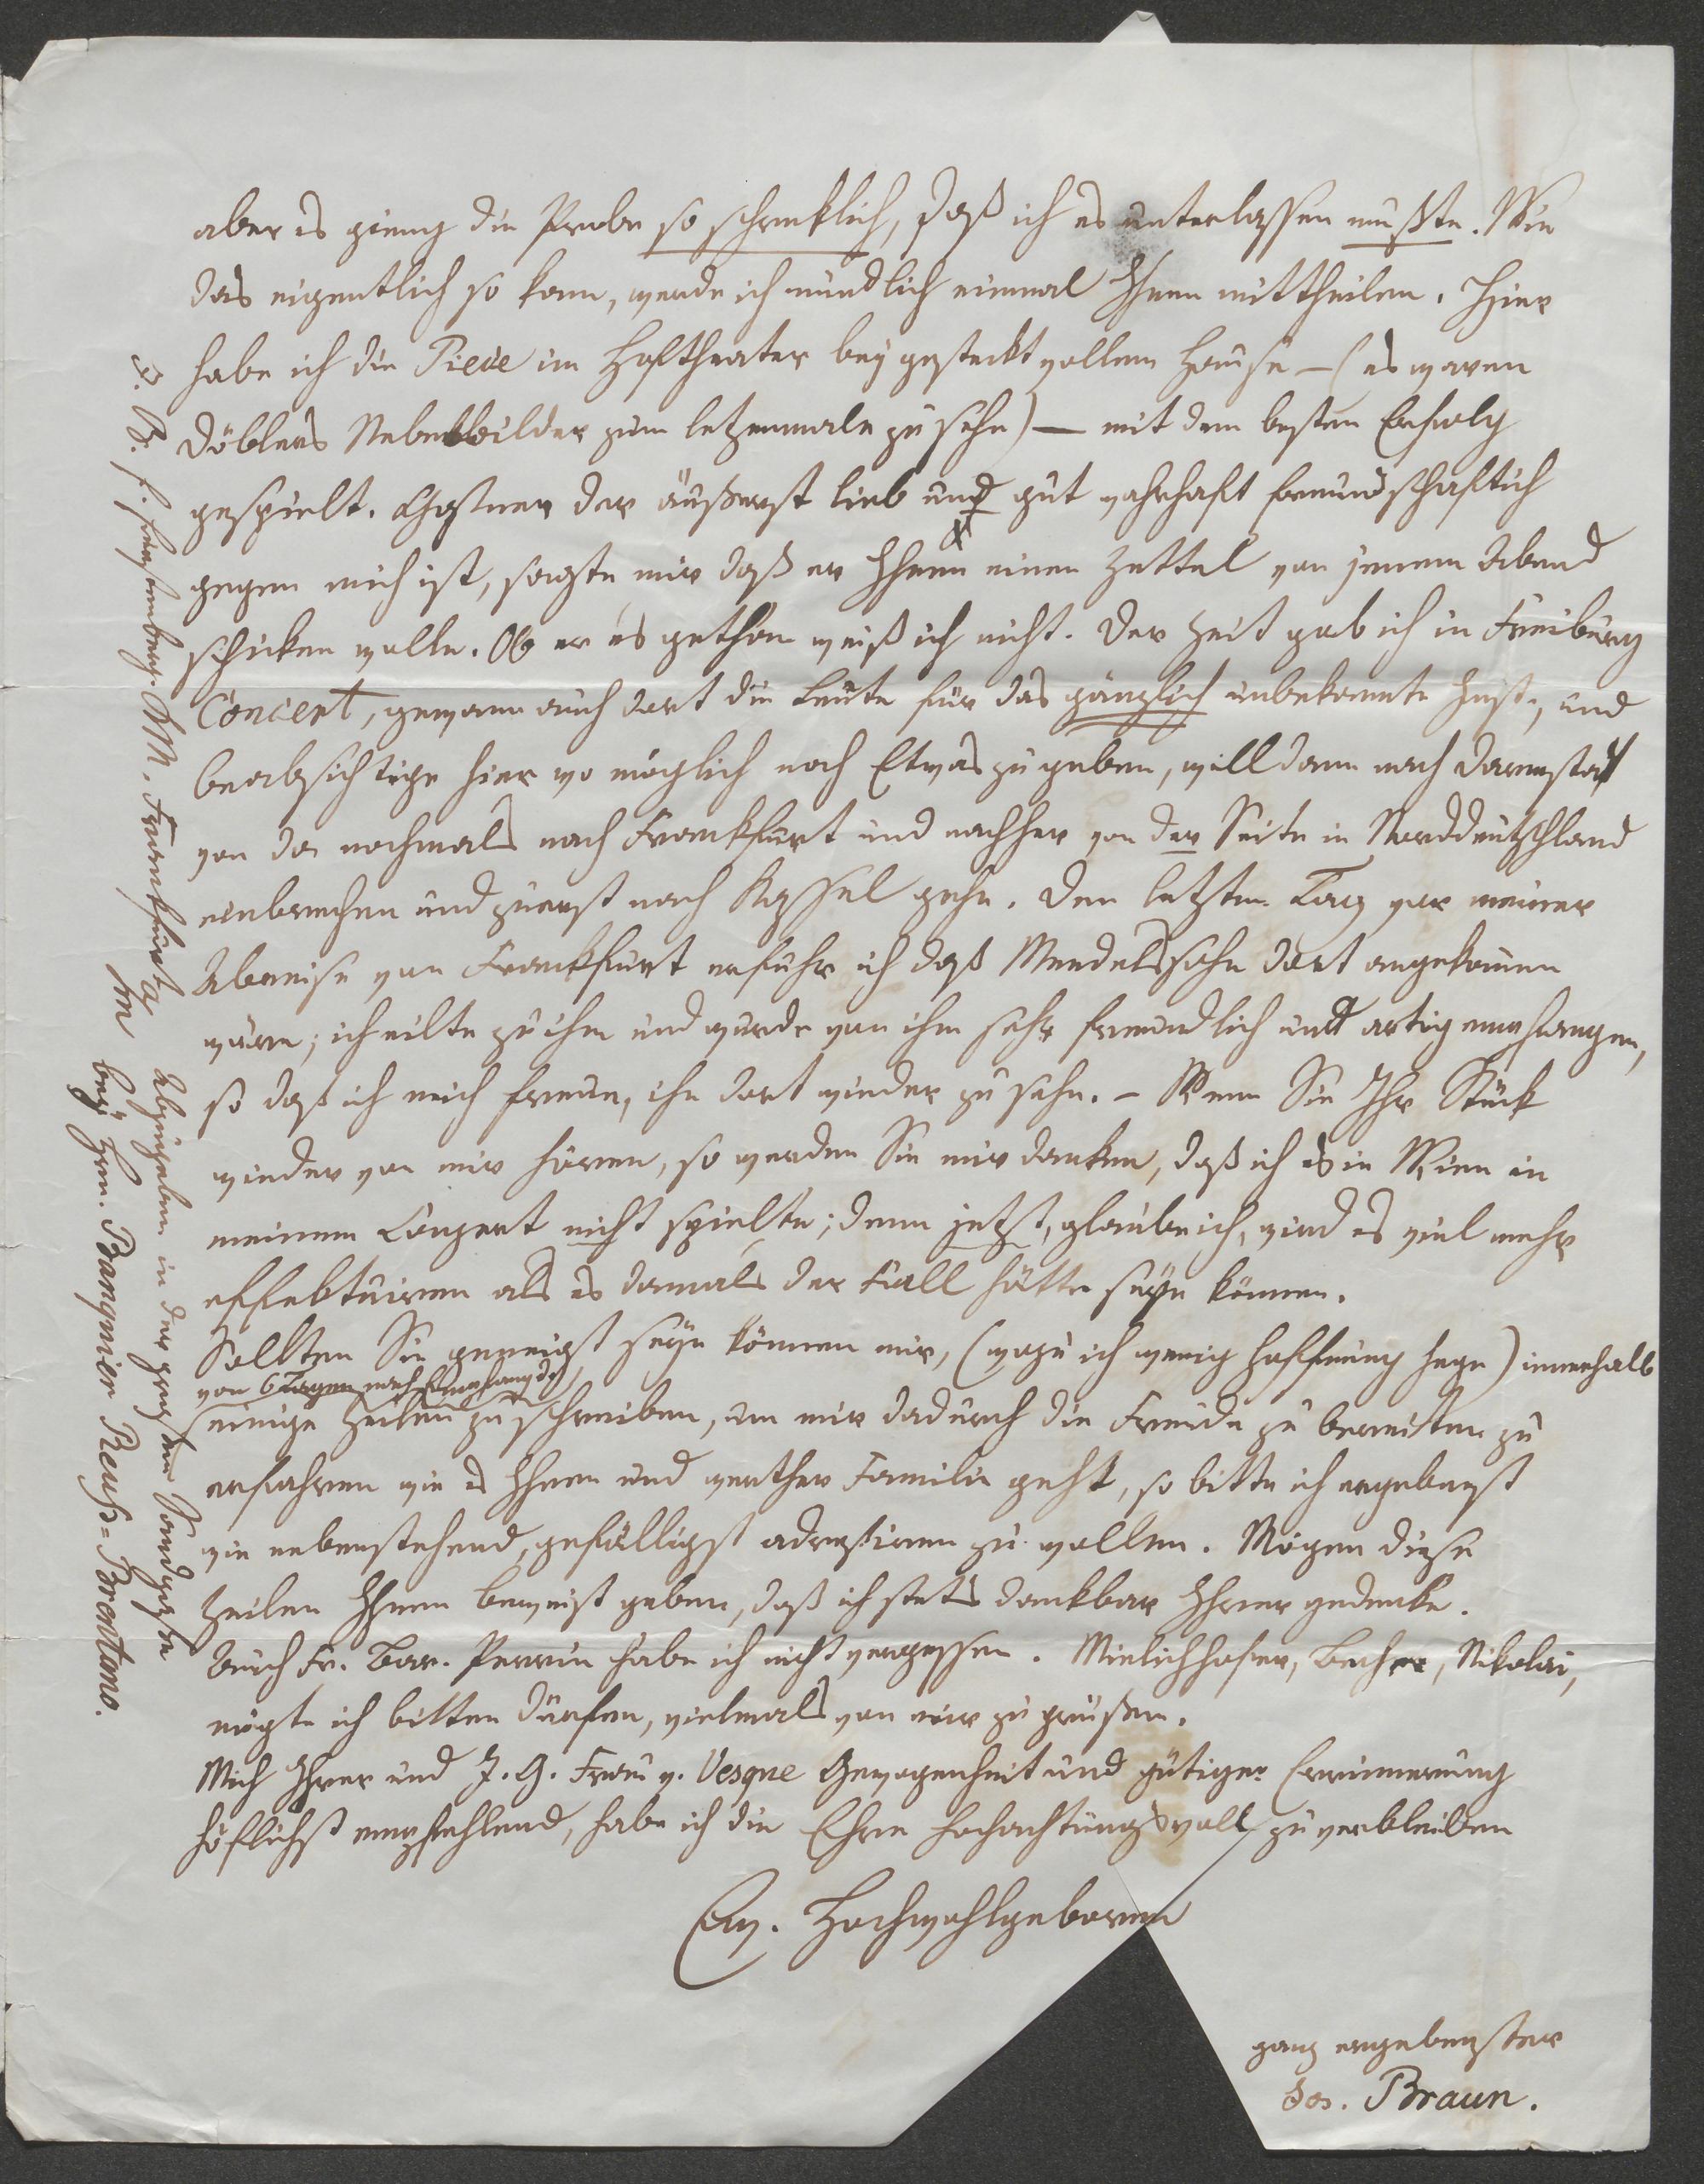 aber es gieng die Probe so schrecklich, daß ich es unterlassen mußte. Wie
das eigentlich so kam, werde ich mündlich einmal Ihnen mittheilen. Hier
habe ich die Pieçe im Hoftheater bey gesteckt vollem Hause – (es waren
Döblers Nebelbilder zum letzenmale zu sehn) – mit dem besten Erfolg
gespielt. der äußerst lieb und gut wahrhaft freundschaftlich
gegen mich ist, sagte mir daß er Ihnen einen Zettel von jenem Abend
schicken wolle. Ob er es gethan weiß ich nicht. Der Zeit gab ich in Freiburg
Concert, gewann auch dort die Leute für das gänzlich unbekannte Inst., und
beabsichtige hier wo möglich noch Etwas zu geben, will dann nach Darmstadt
von da nochmals nach Frankfurt und nachher von der Seite in Norddeutschland
einbrechen und zuerst nach Kassel gehn. Den letzten Tag vor meiner
Abreise von Frankfurt erfuhr ich daß Mendelssohn dort angekomen
wäre; ich eilte zu ihm und wurde von ihm sehr freundlich und artig empfangen,
so daß ich mich freue, ihn dort wieder zu sehn. – Wenn Sie Ihr Stück
wieder von mir hören, so werden Sie mir danken, daß ich es in Wien in
meinem Conzert nicht spielte; denn jetzt, glaube ich, wird es viel mehr
effektuiren als es damals der Fall hätte seyn können.
Sollten Sie geneigt seyn können mir, (wozu ich wenig Hoffnung hege) innerhalb
von 6 Tagen nach Empfang d.
einige Zeilen zu schreiben, um mir dadurch die Freude zu bereiten zu
erfahren wie es Ihnen und werther Familie geht, so bitte ich ergebenst
wie nebenstehend, gefälligst adreßiren zu wollen. Mögen diese
Zeilen Ihnen beweist geben, daß ich stets dankbar Ihrer gedenke.
Auch Fr. Bar. Perrin habe ich nicht vergessen. Mielichhofer, Becher, Nikolai,
mögte ich bitten dürfen, vielmals von mir zu grüßen.
Mich Ihrer und I. G. Frau v. Vesque Gewogenheit und gütiger Errinnerung
höflichst empfehlend, habe ich die Ehre hochachtungsvoll zu verbleiben
Ew. Hochwohlgeboren
ganz ergebenster
Jos. Braun.
J. B. f. fürstenberg. KM. Frankfurt a/M
Abzugeben in der großen Sandgasse
bey Hrn. Banquier Reuß-Brentano.